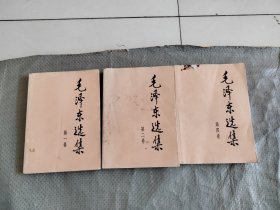 毛泽东选集
第一卷
毛泽东选集
第二卷
毛泽东选集
第四卷